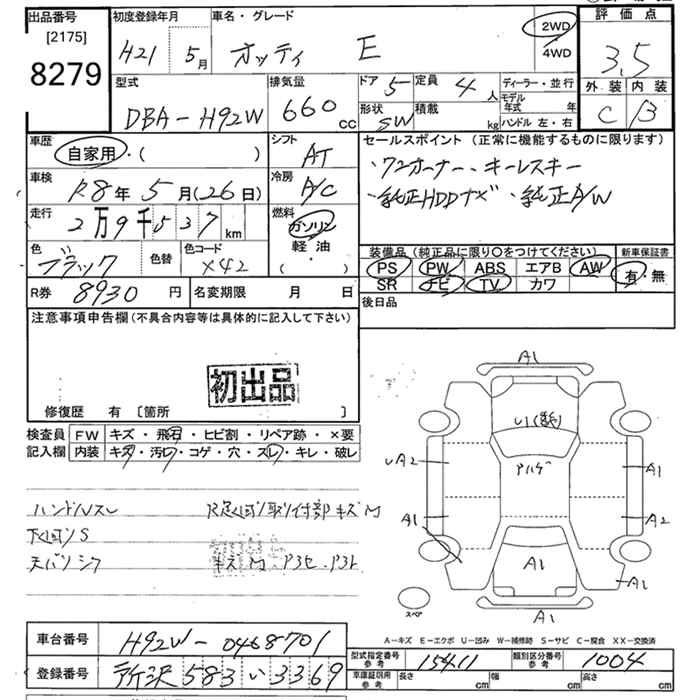 出品番号
[2175]
8279
初度登録年月
H21 5月
車名・グレード
オッティ E
2WD
4WD
評価点
3.5
外装 内装
C B
型式
DBA-H92W
排気量
660 CC
ドア 5
定員 4人
形状 SW
積載 kg
ディーラー・並行
モデル年式 年
ハンドル 左・右
車歴
自家用・( )
シフト
AT
車検
R8年5月(26日)
冷房
A/C
走行
2万9千537km
燃料
ガソリン
軽油
( )
色
ブラック
色替
色コード
X42
R券 8930円
名変期限 月 日
セールスポイント (正常に機能するものに限ります)
・ワンオーナー・キーレスキー
・純正HDDナビ・純正A/W
装備品(純正品に限り○をつけてください)
PS PW ABS エアB AW
SR ナビ TV カワ
新車保証書
有・無
後日品
注意事項申告欄(不具合内容等は具体的に記入して下さい)
初出品
修復歴 有 [箇所 ]
検査員 FW キズ・飛石・ヒビ割・リペア跡・×要
記入欄 内装 キズ・汚れ・コゲ・穴・スレ・キレ・破レ
ハンドルスレ
天バリシワ
A1
A2
A1
A1
A1
A2
A1
A1
A1
スペア
A-キズ E-エクボ U-凹み W-補修跡 S-サビ C-腐食 XX-交換済
車台番号 H92W-0468701
登録番号 所沢583い3369
型式指定番号 参考 15411
類別区分番号 参考 1004
車庫証明用 参考
長さ cm
幅 cm
高さ cm